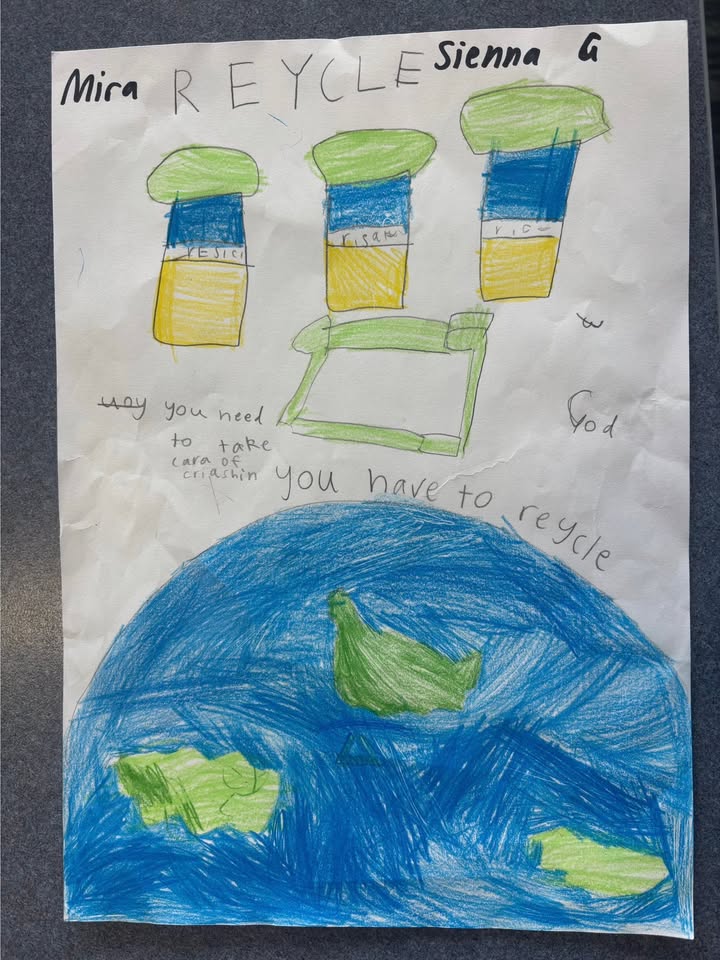 Mira
REYCLE
Sienna G
rESICI
risak
ric
you need
to take
cara of
criashin
God
you have to reycle